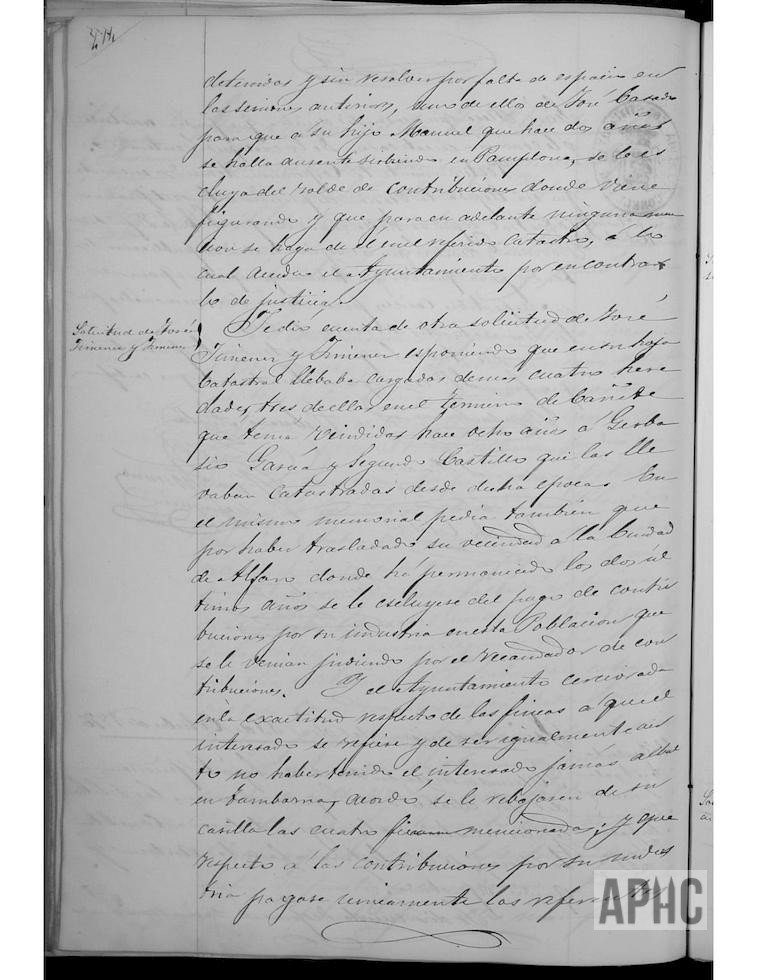 detenidas y sin resolver por falta de espacio en
las sesiones anteriores, uno de ellos de José Casado
para que á su hijo Manuel que hace dos años
se halla ausente sirbiendo en Pamplona, se le es
cluya del rolde de contribuciones donde viene
figurando y que para en adelante ninguna men
cion se haga de él en el referido Catastro, á lo
cual accedio el Ayuntamiento por encontrar
lo de justicia.
Solicitud de José
Jimenez y Jimenez
Se dió cuenta de otra solicitud de José
Jimenez y Jimenez esponiendo que en su hoja
Catastral llebaba cargadas demas cuatro here
dades, tres de ellas en el termino de Cañete
que tenia vendidas hace ocho años á Gerba
sio García y Segundo Castillo que las lle
vaban catastradas desde dicha epoca. En
el mismo memorial pedia también que
por haber trasladado su vecindad á la Ciudad
de Alfaro donde ha permanecido los dos úl
timos años se le escluyese del pago de contri
buciones por su industria en esta Poblacion que
se le venian pidiendo por el recaudador de con
tribuciones. Y el Ayuntamiento cerciorado
en la exactitud respecto de las fincas á que el
interesado se refiere y de ser igualmente cier
to no haber tenido el interesado jamás
en acordó se le rebajasen de su
casilla las cuatro fincas mencionadas, y que
respecto á las contribuciones por su indus
tria pagase unicamente las referentes
APHC